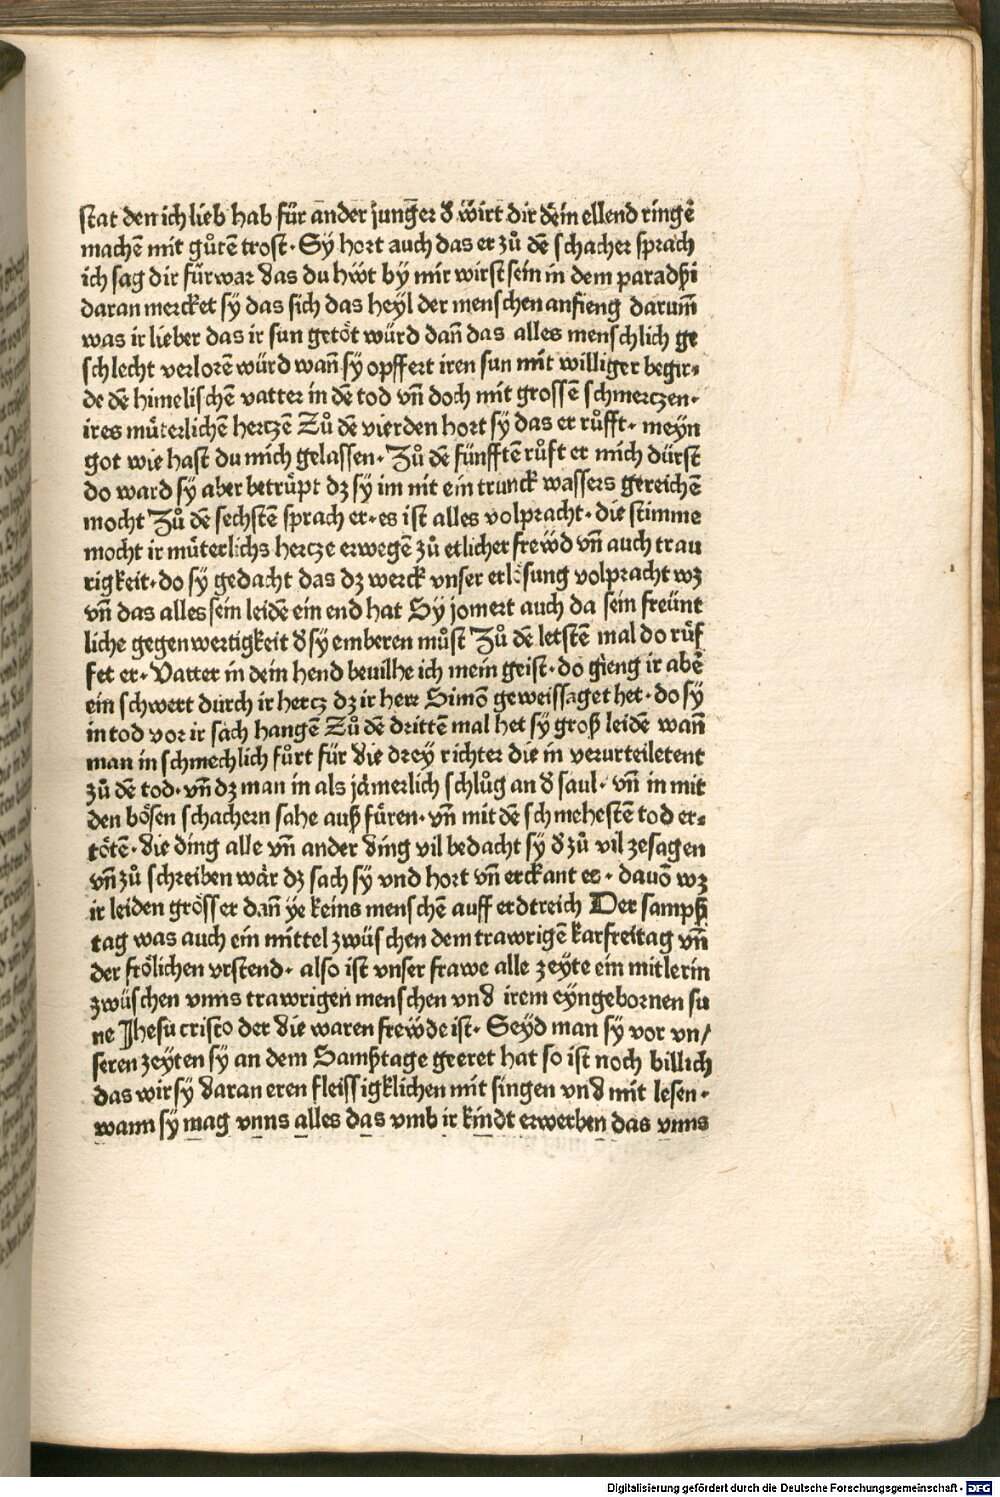 stat den ich lieb hab für ander junger đ wirt dir dein ellend ringē
machē mit gůtē trost· Sy hort auch das er zů dē schacher sprach
ich sag dir fürwar das du hwt by mir wirst sein in dem paradyßi
daran mercket sy das sich das heyl der menschen anfieng darum̄
was ir lieber das ir sun getöt würd dan̄ das alles menschlich ge
schlecht verlorē würd wan̄ sy opffert iren sun mit williger begir⸗
de dē himelischē vatter in dē tod vn̄ doch mit grossē schmertzen·
ires můterlichē hertzē Zů dē vierden hort sy das er růfft· meyn
got wie hast du mich gelassen· Zů dē fünfftē růft er mich dürst
do ward sy aber betrüpt dz sy im nit ein trunck wassers gereichē
mocht Zů dē sechstē sprach er· es ist alles volpracht· die stimme
mocht ir můterlichs hertze erwegē zů etlicher frewd vn̄ auch trau
rigkeit· do sy gedacht das dz werck vnser erlösung volpracht wz
vn̄ das alles sein leidē ein end hat Sy jomert auch da sein freünt
liche gegenwertigkeit đ sy emberen můst Zů dē letstē mal do rüf
fet er· Vatter in dein hend beuilhe ich mein geist· do gieng ir abē
ein schwert durch ir hertz dz ir herr Simō geweissaget het· do sy
in tod vor ir sach hangē Zů dē drittē mal het sy groß leidē wan̄
man in schmechlich fůrt für die drey richter die in verurteiletent
zů dē tod· vn̄ dz man in als jämerlich schlůg an đ saul· vn̄ in mit
den bösen schachern sahe auß füren· vn̄ mit dē schmehestē tod er⸗
tötē· die ding alle vn̄ ander ding vil bedacht sy đ zů vil zesagen
vn̄ zů schreiben wär dz sach sy vnd hort vn̄ erckant es· dauō wz
ir leiden grösser dan̄ ye keins menschē auff erdtreich Der sampß
tag was auch ein mittel zwüschen dem trawrigē karfreitag vn̄
der frölichen vrstend· also ist vnser frawe alle zeyte ein mitlerin
zwüschen vnns trawrigen menschen vnd irem eyngebornen su
ne Jhesu cristo der die waren frewde ist· Seyd man sy vor vn/
seren zeyten sy an dem Samßtage geeret hat so ist noch billich
das wir sy daran eren fleissigklichen mit singen vnd mit lesen·
wann sy mag vnns alles das vmb ir kindt erwerben das vnns
Digitalisierung gefördert durch die Deutsche Forschungsgemeinschaft - DFG